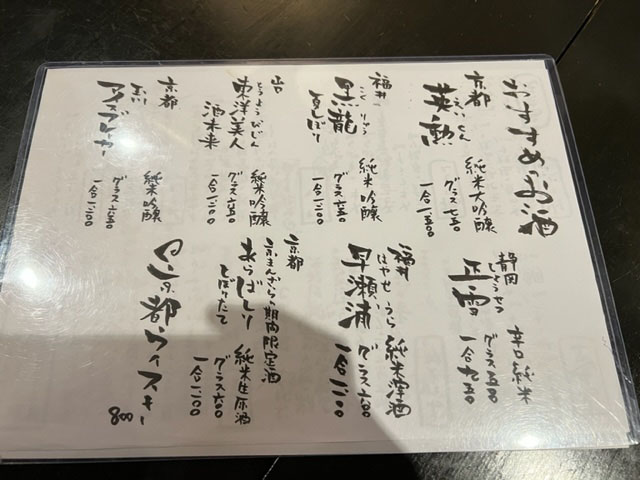 おすすめのお酒
京都
えいくん
英勲
純米大吟醸
グラス七五〇
一合一、五〇〇
福井
こくりゅう
黒龍
夏しぼり
純米吟醸
グラス六五〇
一合一、一〇〇
山口
とうようびじん
東洋美人
酒未来
純米吟醸
グラス六五〇
一合一、一〇〇
京都
アイスブレーカー
純米吟醸
グラス六五〇
一合一、一〇〇
静岡
しょうせつ
正雪
辛口純米
一合九五〇
福井
はやせうら
早瀬浦
純米澤酒
グラス六〇〇
一合一、一〇〇
京都
期間限定酒
あらばしり
しぼりたて
純米生原酒
グラス六〇〇
一合一、一〇〇
京都ウイスキー
800